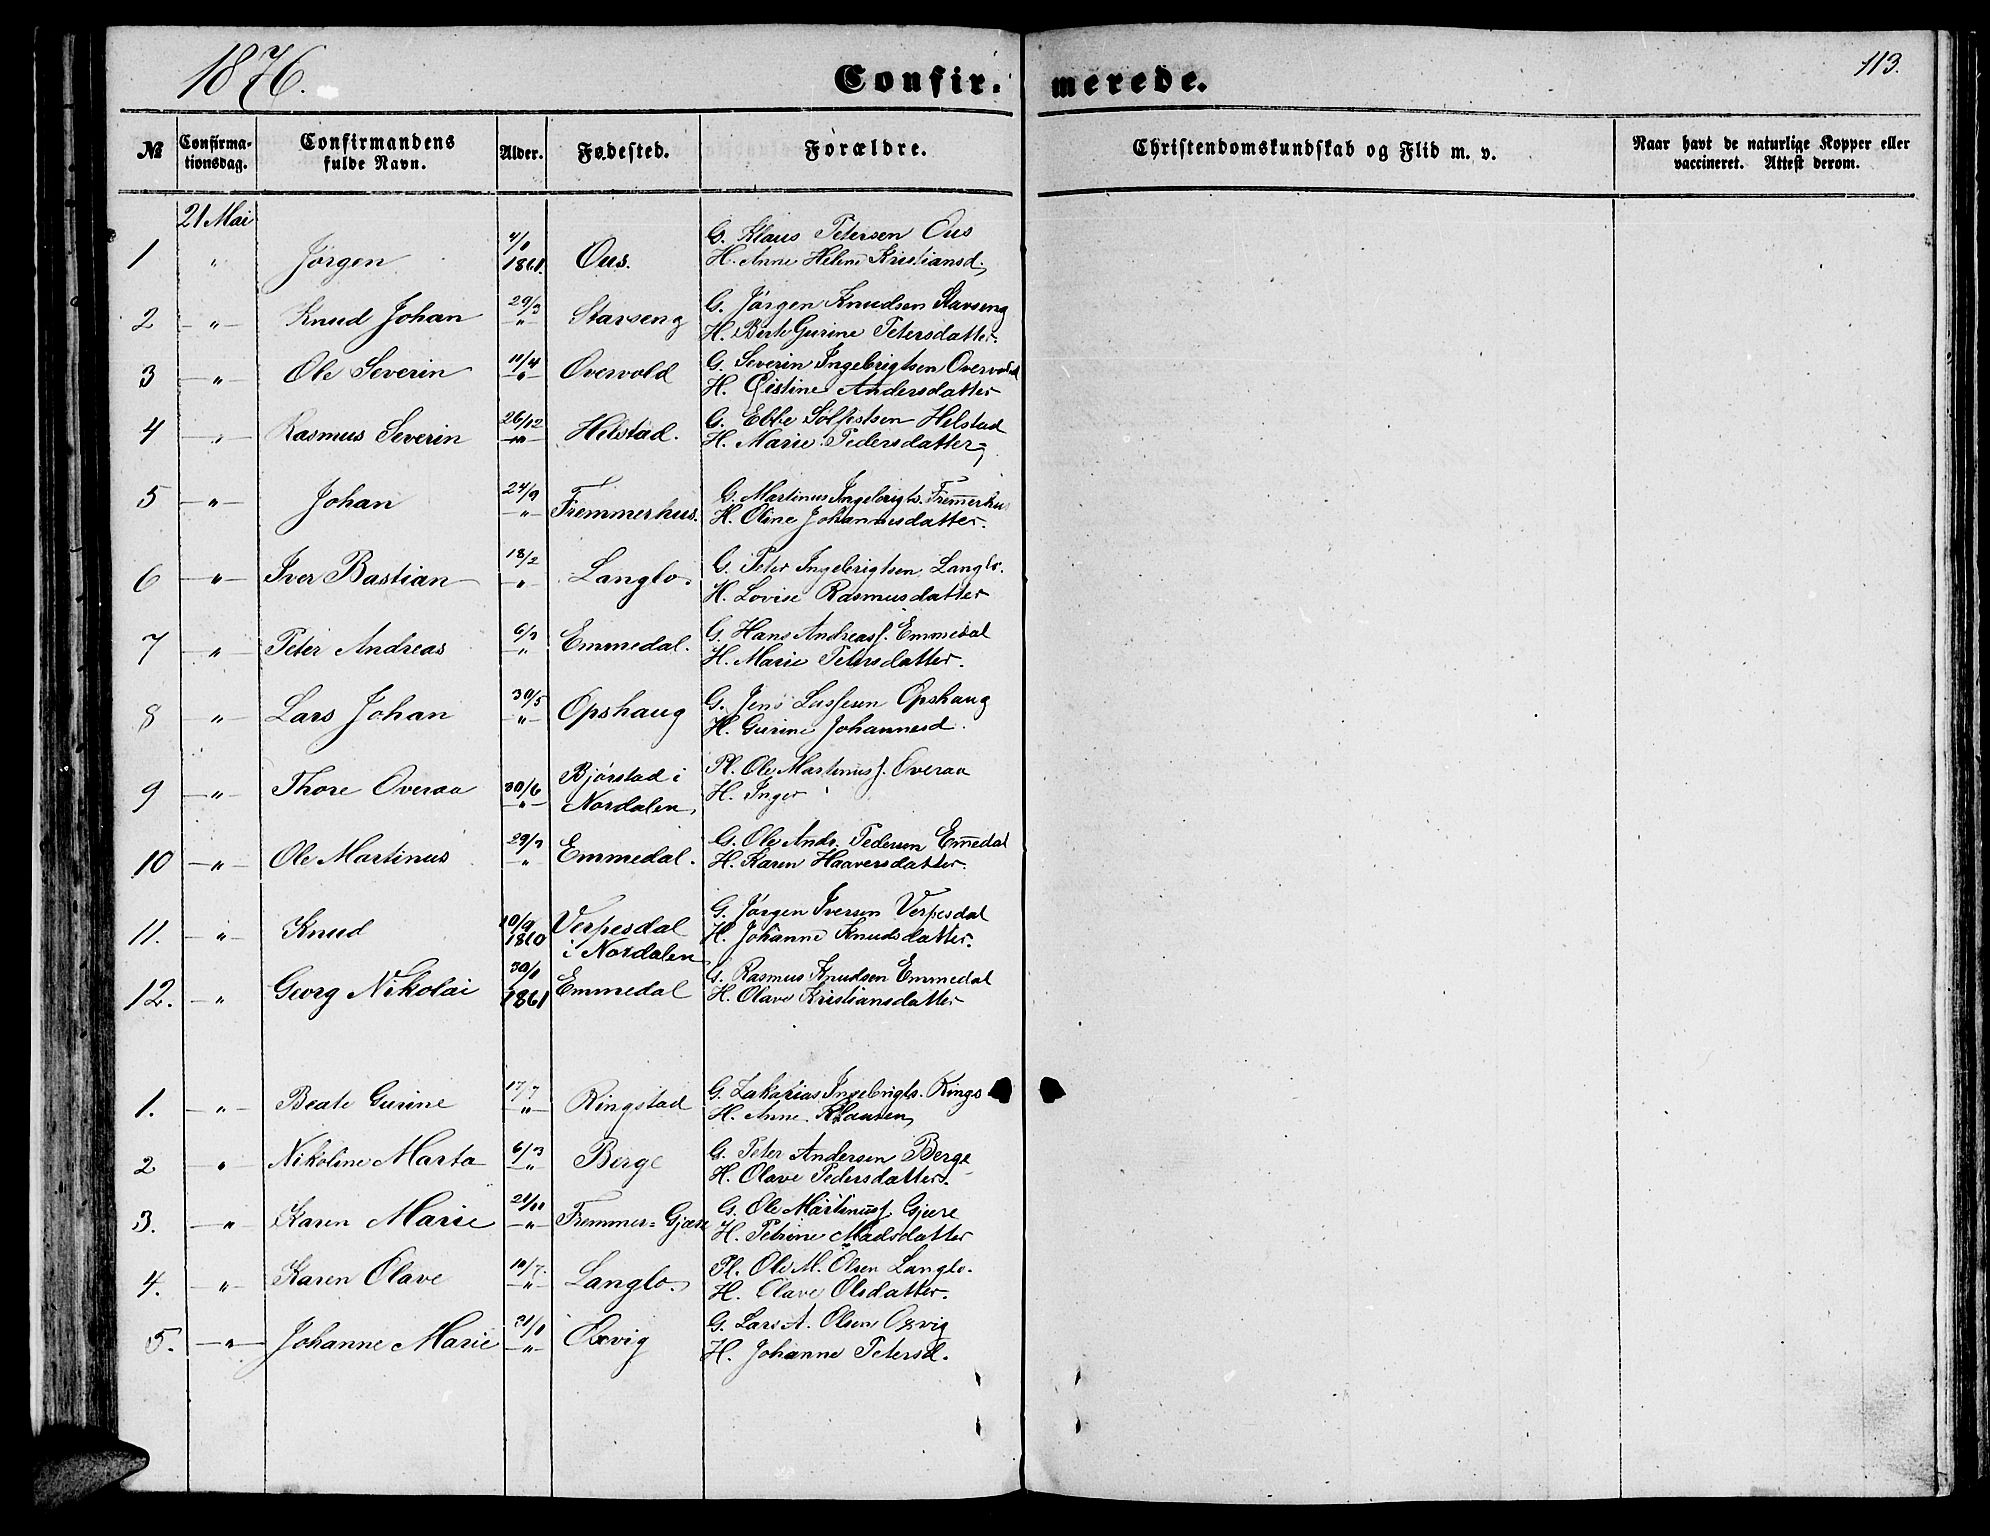 1876.
Confir. merede.
113.
№ Confirma- tionsdag. Confirmandens fulde Navn. Alder. Fødested. Forældre. Christendomskundskab og Flid m. v. Naar havt de naturlige Kopper eller vaccineret. Attest derom.
21 Mai
1 " Jørgen 4/1 1861. Ous. G. Klaus Petersen Ous
H. Anne Helene Kristiansd.
2 -"- Knud Johan 29/3 -"- Starseng G. Jørgen Knudsen Starseng
H. Berte Gurine Petersdatter.
3 -"- Ole Severin 11/4 -"- Overvold G. Severin Ingebrigtsen Overvold
H. Cistine Andersdatter
4 -"- Rasmus Severin 26/12 -"- Helstad. G. Ebbe Sølfestsen Helstad
H. Marie Pedersdatter
5 -"- Johan 24/9 -"- Fremmerhus. G. Martinus Ingebrigts. Fremerhus
H. Oline Johannesdatter.
6 -"- Iver Bastian 18/2 -"- Langlo. G. Peter Ingebrigtsen Langlo.
H. Lovise Rasmusdatter
7 -"- Peter Andreas 6/3 -"- Emmedal. G. Hans Andreasf. Emmedal
H. Marie Petersdatter.
8 -"- Lars Johan 30/5 -"- Opshaug G. Jens Lassesen Opshaug
H. Gurine Johannesd.
9 -"- Thore Overaa 30/6 -"- Bjørstad i Nordalen, Pl. Ole Martinusf. Overaa
H. Inger
10 -"- Ole Martinus 29/3 " Emmedal. G. Ole Andr. Pedersen Emedal
H. Karen Haaversdatter.
11. -"- Knud 10/9 1860 Verpesdal i Nordalen G. Jørgen Iversen Verpesdal
H. Johanne Knudsdatter.
12. -"- Georg Nikolai 30/1 1861 Emmedal G. Rasmus Knudsen Emmedal
H. Olave Kristiansdatter
1. -"- Beate Gurine 17/7 -"- Ringstad G. Zakarias Ingebrigts. Rings
H. Anne Klausen
2 " Nikoline Marta 6/3 -"- Berge G. Peter Andersen Berge
H. Olave Pedersdatter.
3. -"- Karen Marie 21/11 -"- Fremmer=Gjære G. Ole Martinusf. Gjære
H. Petrine Madsdatter
4. -"- Karen Olave 10/7. -"- Langlo. Pl. Ole M. Olsen Langlo.
H. Olave Olsdatter.
5. -"- Johanne Marie 31/1 -"- Oxvig G. Lars A. Olsen Oxvig
H. Johanne Petersd.